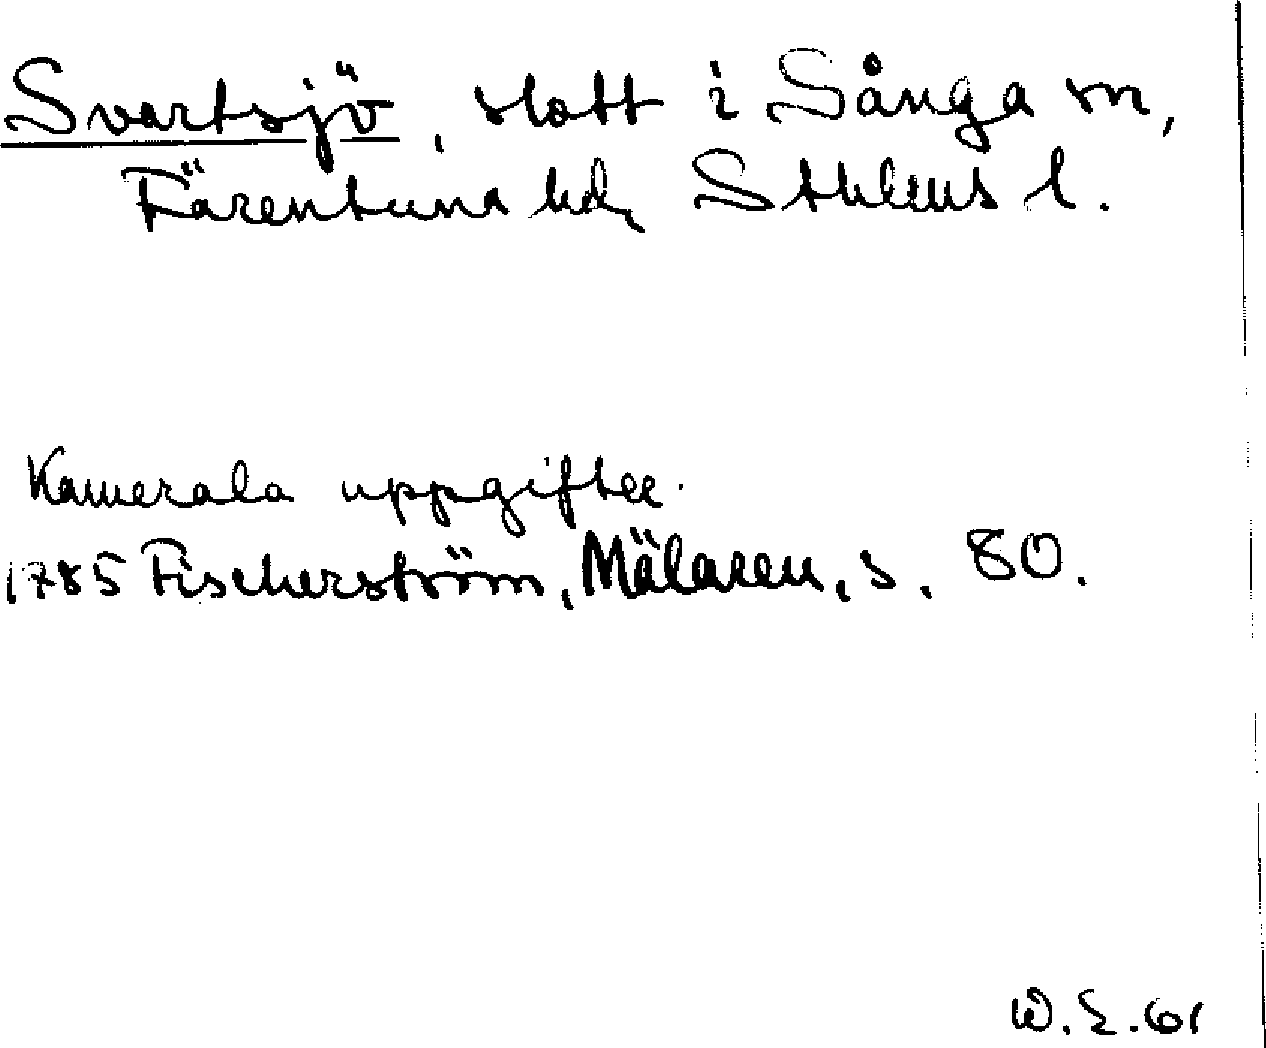 Svartsjö, slott i Sånga sn,
Färentuna hd, Sthlms l.
Kamerala uppgifter.
1785 Fischerström, Mälaren, s. 80.
W. E. 61